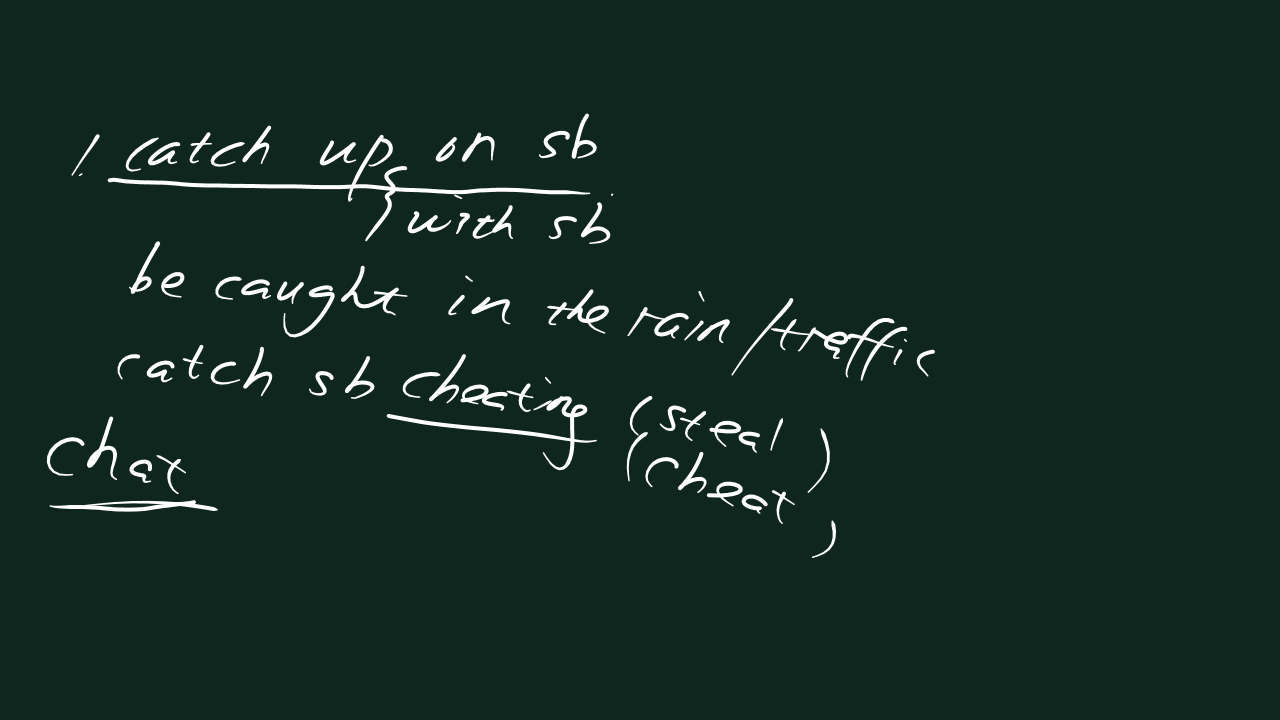 1. catch up on sb
with sb
be caught in the rain/traffic
catch sb cheating (steal)
(cheat)
chat